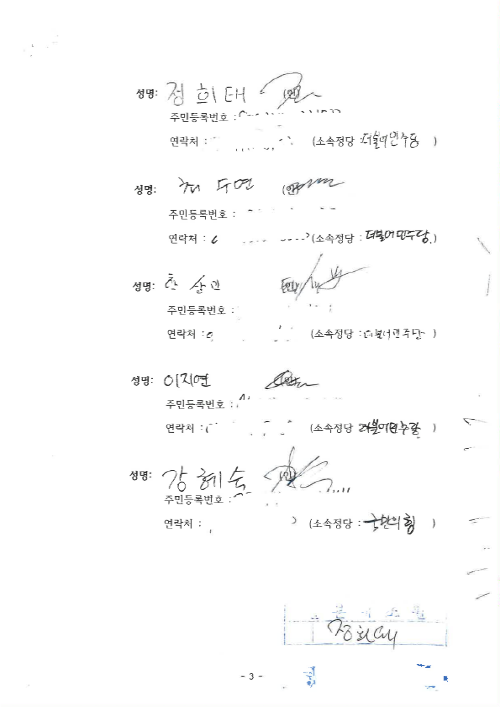 성명: 정희태 (인)
주민등록번호 :
연락처 : (소속정당 : 더불어민주당 )
성명: 최수연 (인)
주민등록번호 :
연락처 : (소속정당 : 더불어민주당 )
성명: 한상민
주민등록번호 :
연락처 : (소속정당 : 더불어민주당 )
성명: 이지연
주민등록번호 :
연락처 : (소속정당 : 더불어민주당 )
성명: 강혜숙
주민등록번호 :
연락처 : (소속정당 : 국민의힘 )
정희태
- 3 -